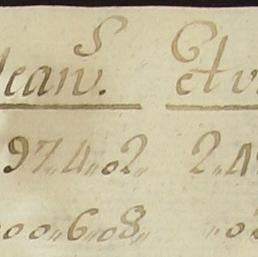 S G
lean. et v
97.,4.,02., 2.,4
00.,6.,08., .,0